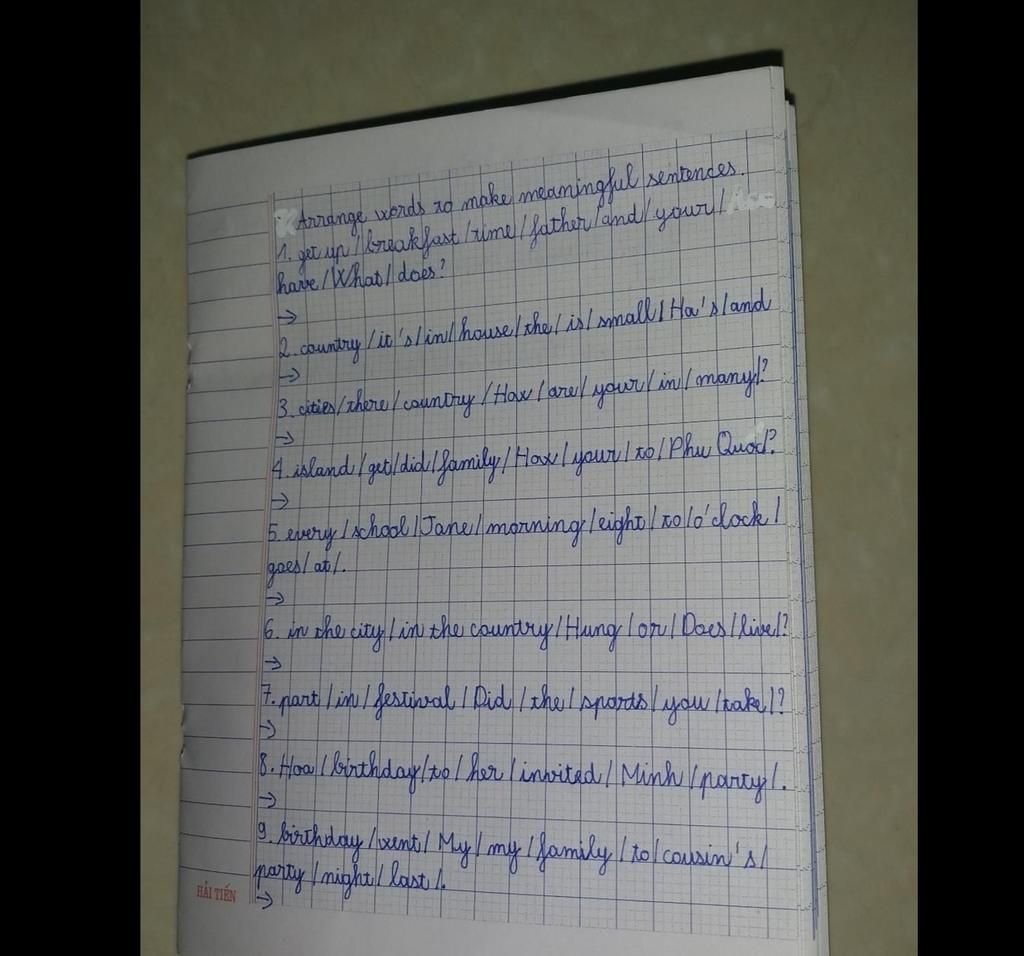 Arrange words to make meaningful sentences.
1. get up / breakfast / time / father / and / your /
have / What / does?
→
2. country / it's / in / house / the / is / small / Ha's / and
→
3. cities / there / country / How / are / your / in / many / ?
→
4. island / get / did / family / How / your / to / Phu Quoc?
→
5. every / school / Jane / morning / eight / to / o'clock /
goes / at /.
→
6. in the city / in the country / Hung / or / Does / live / ?
→
7. part / in / festival / Did / the / sports / you / take / ?
→
8. Hoa / birthday / to / her / invited / Minh / party /.
→
9. birthday / went / My / my / family / to / cousin's /
party / night / last /.
→
HẢI TIẾN